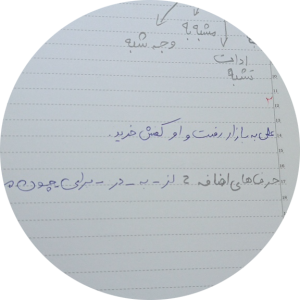 مشبه به
وجه شبه
ادات
تشبه
علی به بازار رفت و او کفش خرید.
حرف‌های اضافه : از - به - در - برای چون